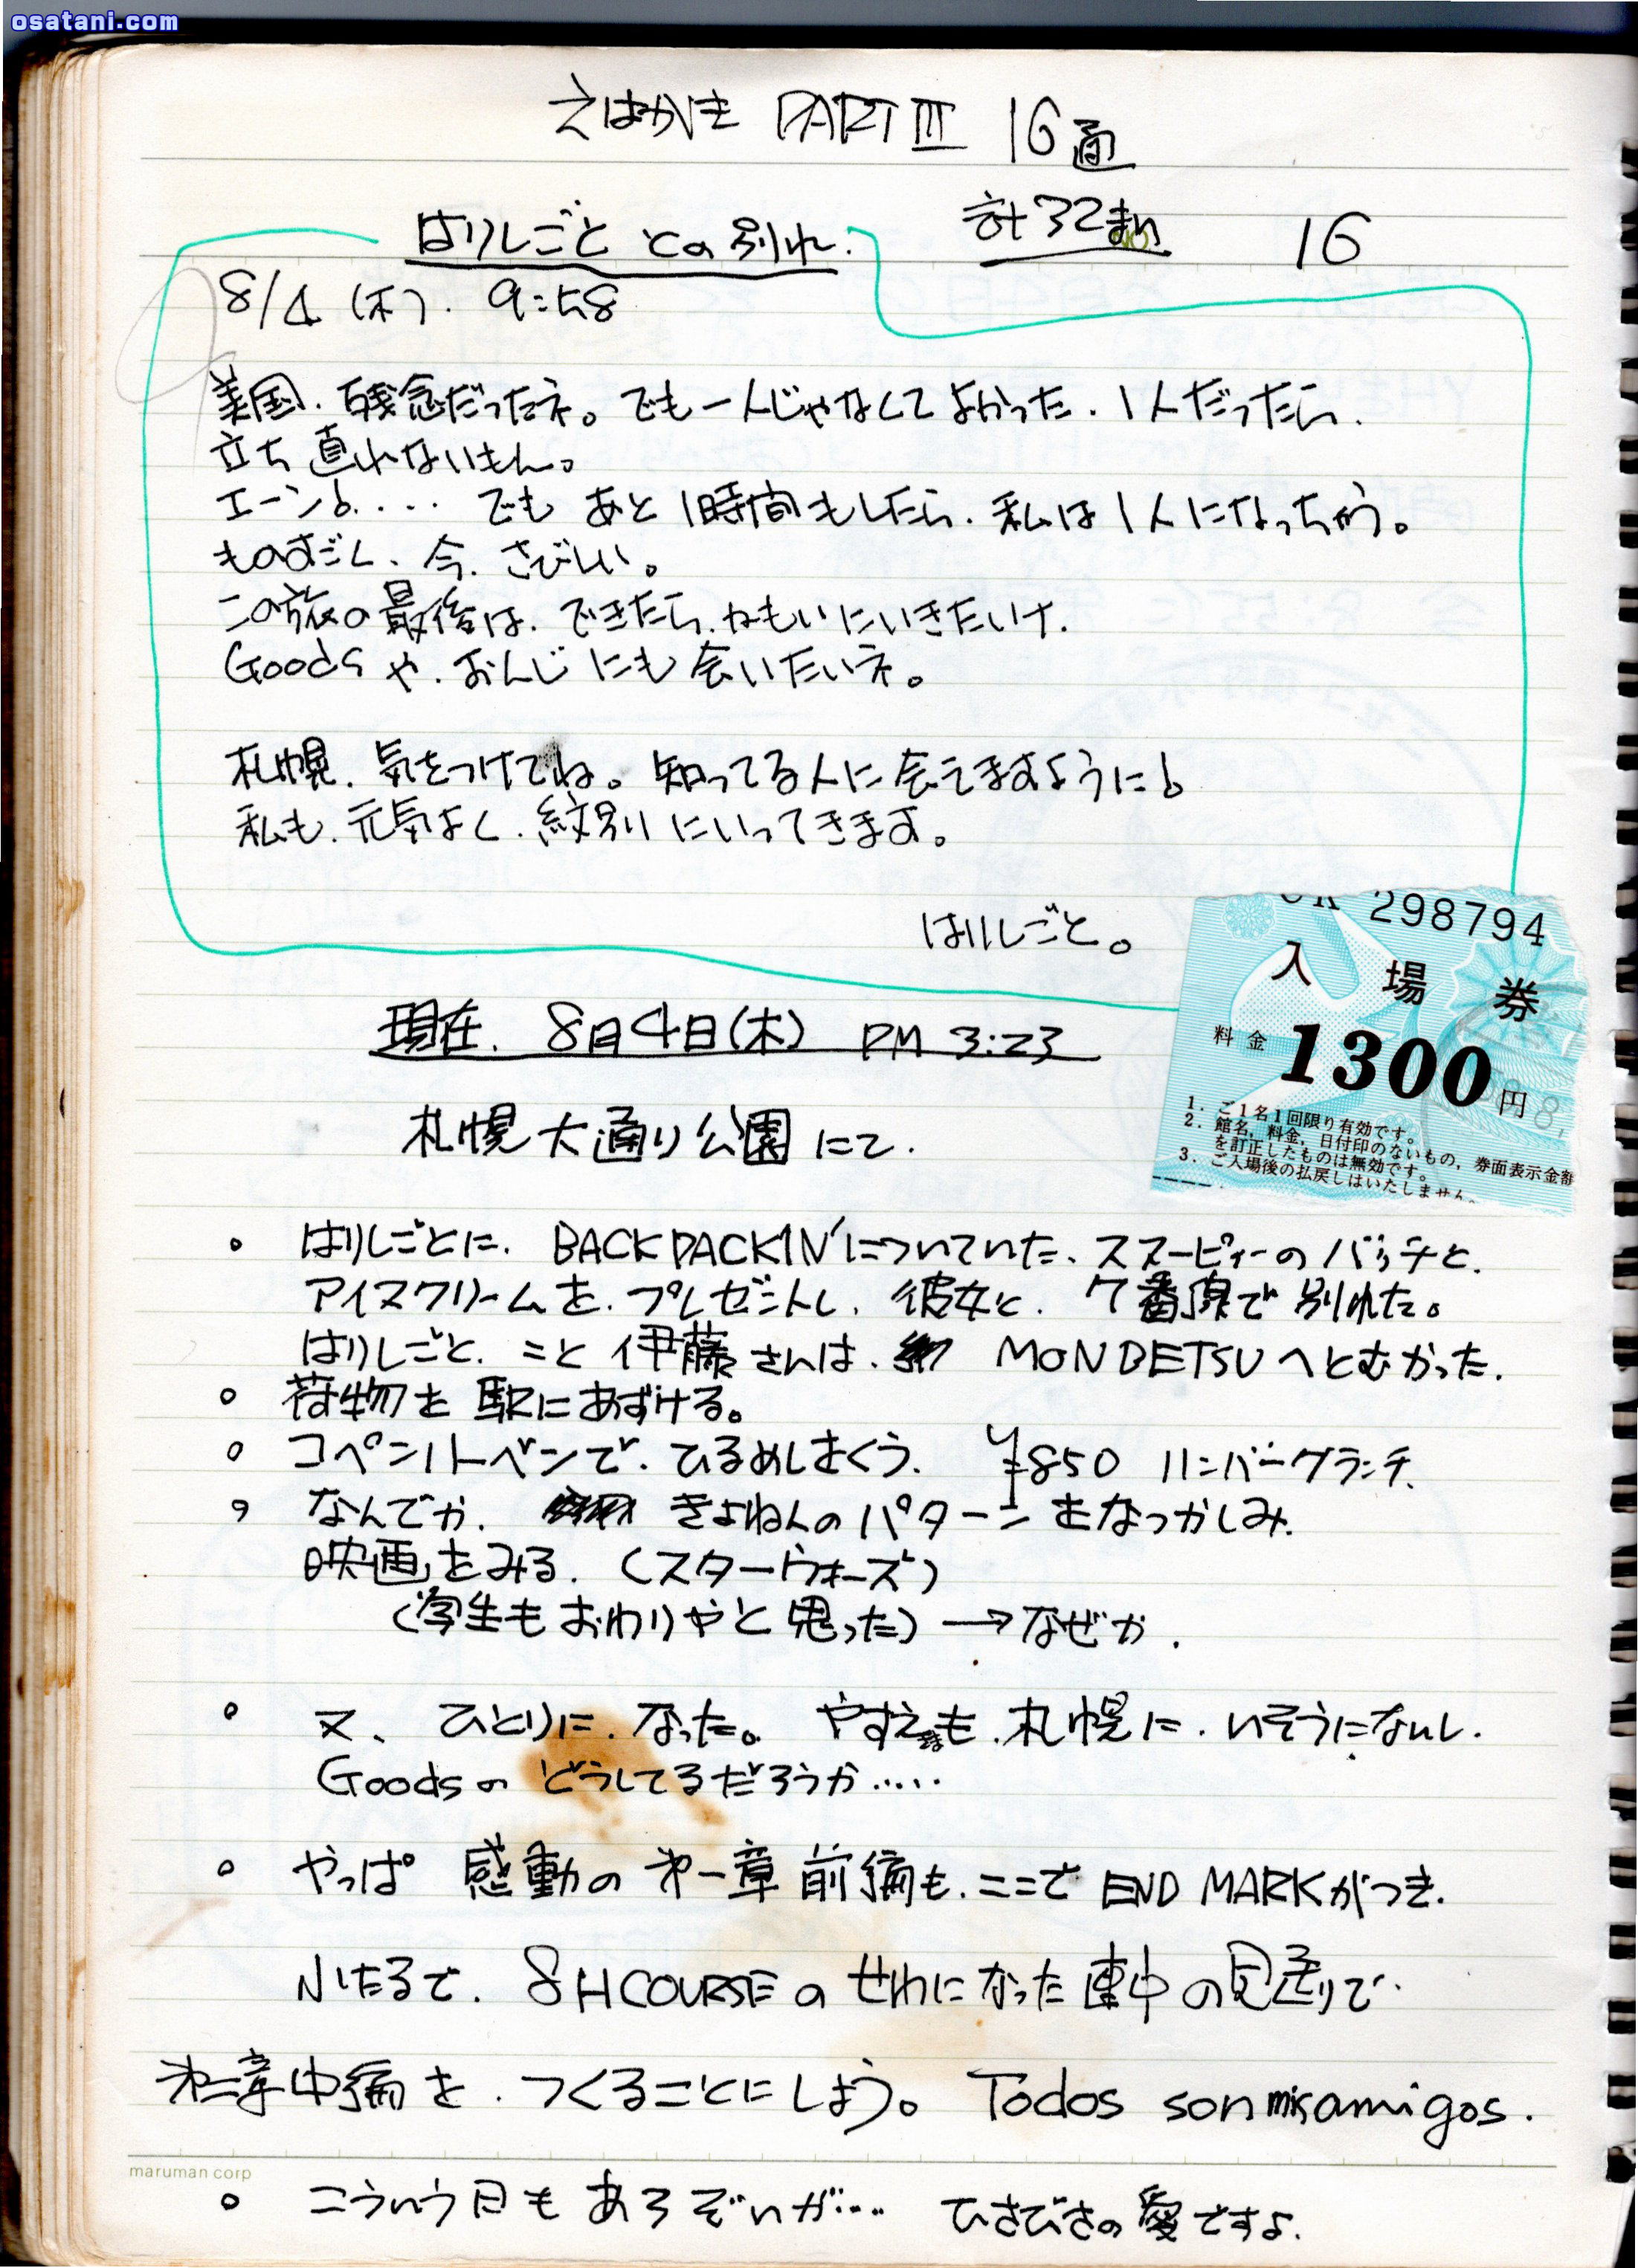 osatani.com
えはがき PART III 16通
はりしごと との別れ. 計32まい 16
8/4 (木). 9:58
美国. 残念だったネ。でも一人じゃなくてよかった. 1人だったら.
立ち直れないもん。
エーン!.... でも あと 1時間もしたら. 私は1人になっちゃう。
ものすごく. 今. さびしい。
この旅の最後は. できたら. かもいにいきたいけ.
Goods や. おんじ にも 会いたいネ。
札幌. 気をつけてね。知ってる人に会えますように!
私も. 元気よく. 紋別にいってきます。
はりしごと。
298794
入場券
料金 1300円
1. ご1名1回限り有効です。
2. 館名, 料金, 日付印のないもの, 券面表示金額
を訂正したものは無効です。
3. ご入場後の払戻しはいたしません。
現在. 8月4日(木) PM 3:23
札幌大通り公園にて.
。 はりしごとに. BACKPACKIN'についていた. スヌーピィーのバッチと.
アイスクリームを. プレゼントし. 彼女と. 7番線で別れた。
はりしごと. こと 伊藤さんは. MONBETSUへとむかった.
。 荷物を 駅にあずける。
。 コペンハーベンで. ひるめしをくう. ¥850 ハンバーグランチ.
。 なんでか. きょねんのパターンをなつかしみ.
映画をみる. (スターウォーズ)
(学生もおわりやと思った) → なぜか.
。 又、ひとりに. なった。 やすえも. 札幌に. いそうにないし.
Goodsの どうしてるだろうか.....
。 やっぱ 感動の 第一章 前編も. ここで END MARKがつき.
小たるで. 8H COURSEの せわになった連中の見送りで.
第一章中編を. つくることにしよう。 Todos son mis amigos.
maruman corp
。 こういう日もあろぞいが... ひさびさの愛ですよ.